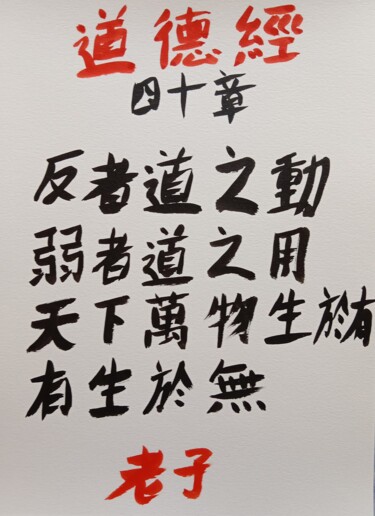 道德經
四十章
反者道之動
弱者道之用
天下萬物生於有
有生於無
老子